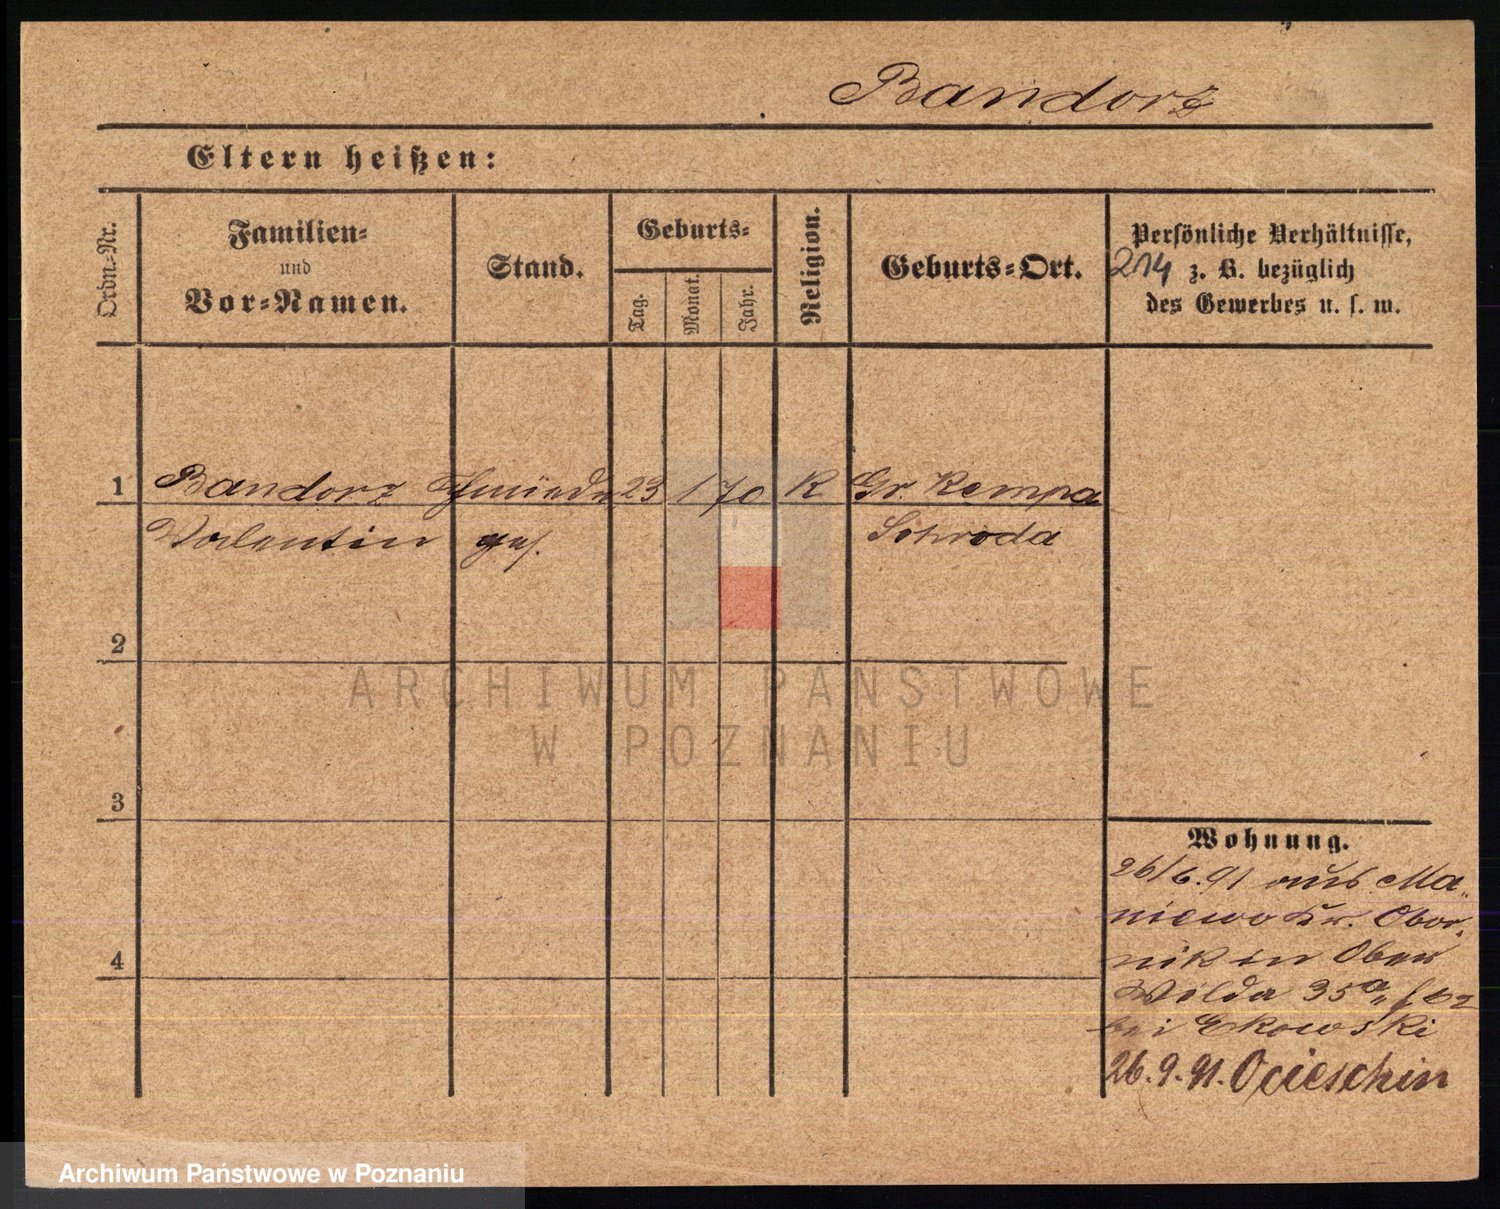 Bandorz
Eltern heißen:
Ordn.-Nr.
Familien-
und
Vor-Namen.
Stand.
Geburts-
Tag.
Monat.
Jahr.
Religion.
Geburts-Ort.
Persönliche Verhältnisse,
214 z. B. bezüglich
des Gewerbes u. s. w.
1 Bandorz Schmiede 23 1 70 K Gr. Kempa
Valentin ges. Schroda
2
3
4
Wohnung.
26/6.91 aus Ma-
niewo Kr. Obor-
nik in Ober
Wilda 35a
bei Ekowski
26.9.91. Ocieschin
ARCHIWUM PAŃSTWOWE
W POZNANIU
Archiwum Państwowe w Poznaniu